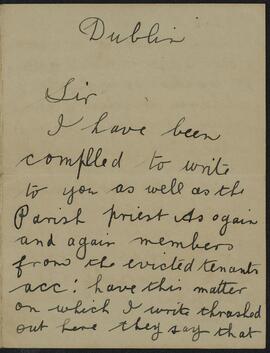 Dublin
Sir
I have been
complled to write
to you as well as the
Parish priest As again
and again members
from the evicted tenants
acc: have this matter
on which I write thrashed
out here they say that